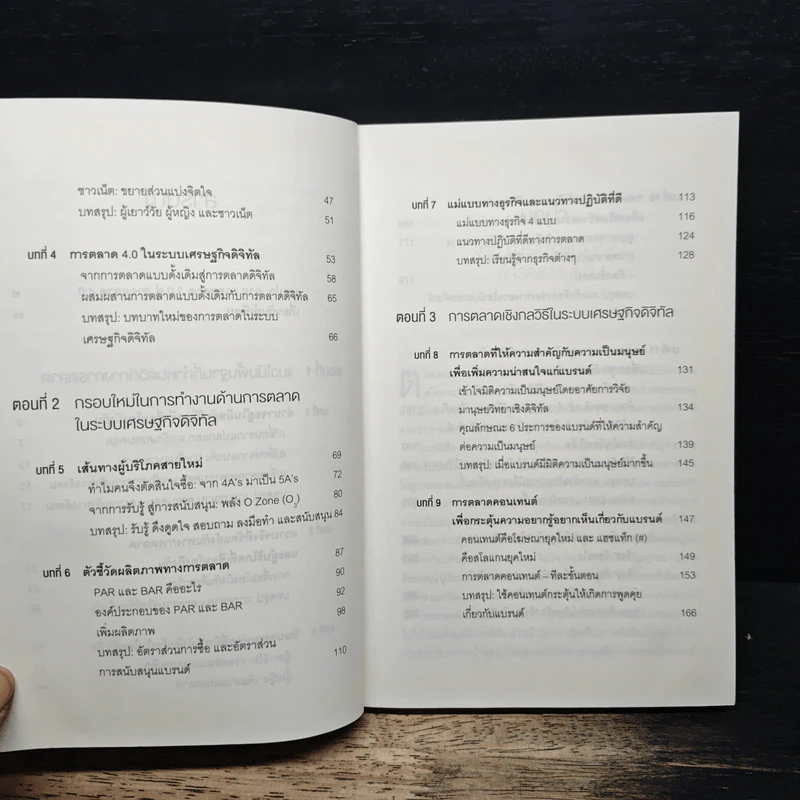 ชาวเน็ต: ขยายส่วนแบ่งจิตใจ 47
บทสรุป: ผู้เยาว์วัย ผู้หญิง และชาวเน็ต 51
บทที่ 4 การตลาด 4.0 ในระบบเศรษฐกิจดิจิทัล 53
จากการตลาดแบบดั้งเดิมสู่การตลาดดิจิทัล 58
ผสมผสานการตลาดแบบดั้งเดิมกับการตลาดดิจิทัล 65
บทสรุป: บทบาทใหม่ของการตลาดในระบบ
เศรษฐกิจดิจิทัล 66
ตอนที่ 2 กรอบใหม่ในการทำงานด้านการตลาด
ในระบบเศรษฐกิจดิจิทัล
บทที่ 5 เส้นทางผู้บริโภคสายใหม่ 69
ทำไมคนจึงตัดสินใจซื้อ: จาก 4A's มาเป็น 5A's 72
จากการรับรู้ สู่การสนับสนุน: พลัง O Zone (O₃) 80
บทสรุป: รับรู้ ดึงดูดใจ สอบถาม ลงมือทำ และสนับสนุน 84
บทที่ 6 ตัวชี้วัดผลิตภาพทางการตลาด 87
PAR และ BAR คืออะไร 90
องค์ประกอบของ PAR และ BAR 92
เพิ่มผลิตภาพ 98
บทสรุป: อัตราส่วนการซื้อ และอัตราส่วน
การสนับสนุนแบรนด์ 110
บทที่ 7 แม่แบบทางธุรกิจและแนวทางปฏิบัติที่ดี 113
แม่แบบทางธุรกิจ 4 แบบ 116
แนวทางปฏิบัติที่ดีทางการตลาด 124
บทสรุป: เรียนรู้จากธุรกิจต่างๆ 128
ตอนที่ 3 การตลาดเชิงกลวิธีในระบบเศรษฐกิจดิจิทัล
บทที่ 8 การตลาดที่ให้ความสำคัญกับความเป็นมนุษย์
เพื่อเพิ่มความน่าสนใจแก่แบรนด์ 131
เข้าใจมิติความเป็นมนุษย์โดยอาศัยการวิจัย
มานุษยวิทยาเชิงดิจิทัล 134
คุณลักษณะ 6 ประการของแบรนด์ที่ให้ความสำคัญ
ต่อความเป็นมนุษย์ 139
บทสรุป: เมื่อแบรนด์มีมิติความเป็นมนุษย์มากขึ้น 145
บทที่ 9 การตลาดคอนเทนต์
เพื่อกระตุ้นความอยากรู้อยากเห็นเกี่ยวกับแบรนด์ 147
คอนเทนต์คือโฆษณายุคใหม่ และ แฮชแท็ก (#)
คือสโลแกนยุคใหม่ 149
การตลาดคอนเทนต์ – ทีละขั้นตอน 153
บทสรุป: ใช้คอนเทนต์กระตุ้นให้เกิดการพูดคุย
เกี่ยวกับแบรนด์ 166